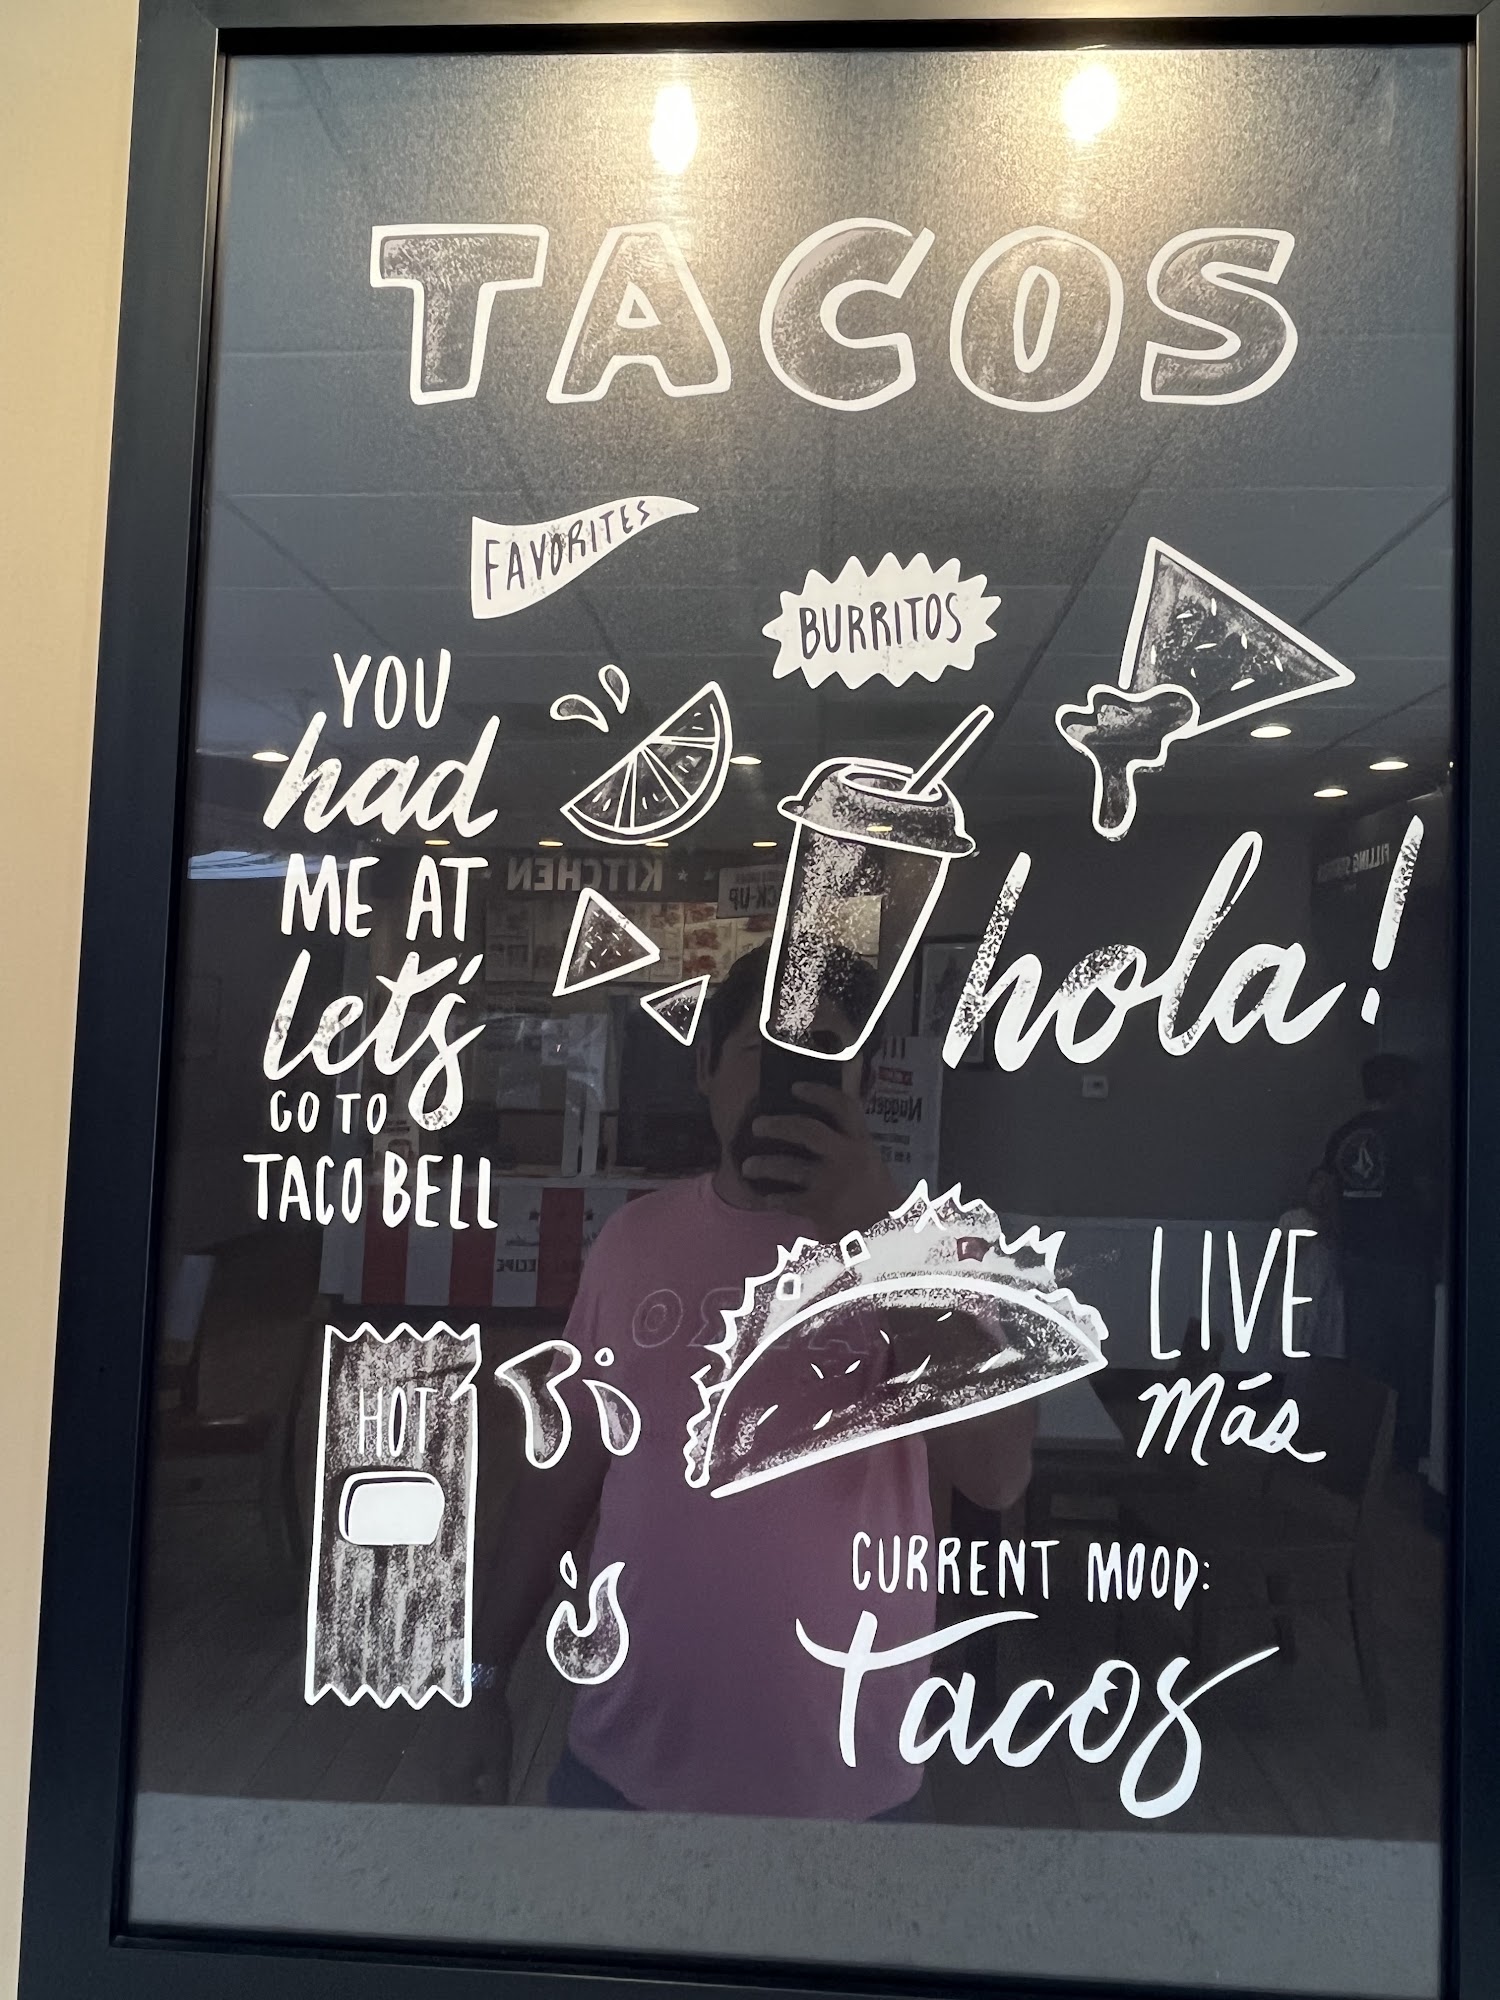 TACOS
FAVORITES
BURRITOS
YOU
had
ME AT
let's
GO TO
TACO BELL
hola!
KITCHEN
FILLING STATION
LIVE
Más
HOT
CURRENT MOOD:
Tacos